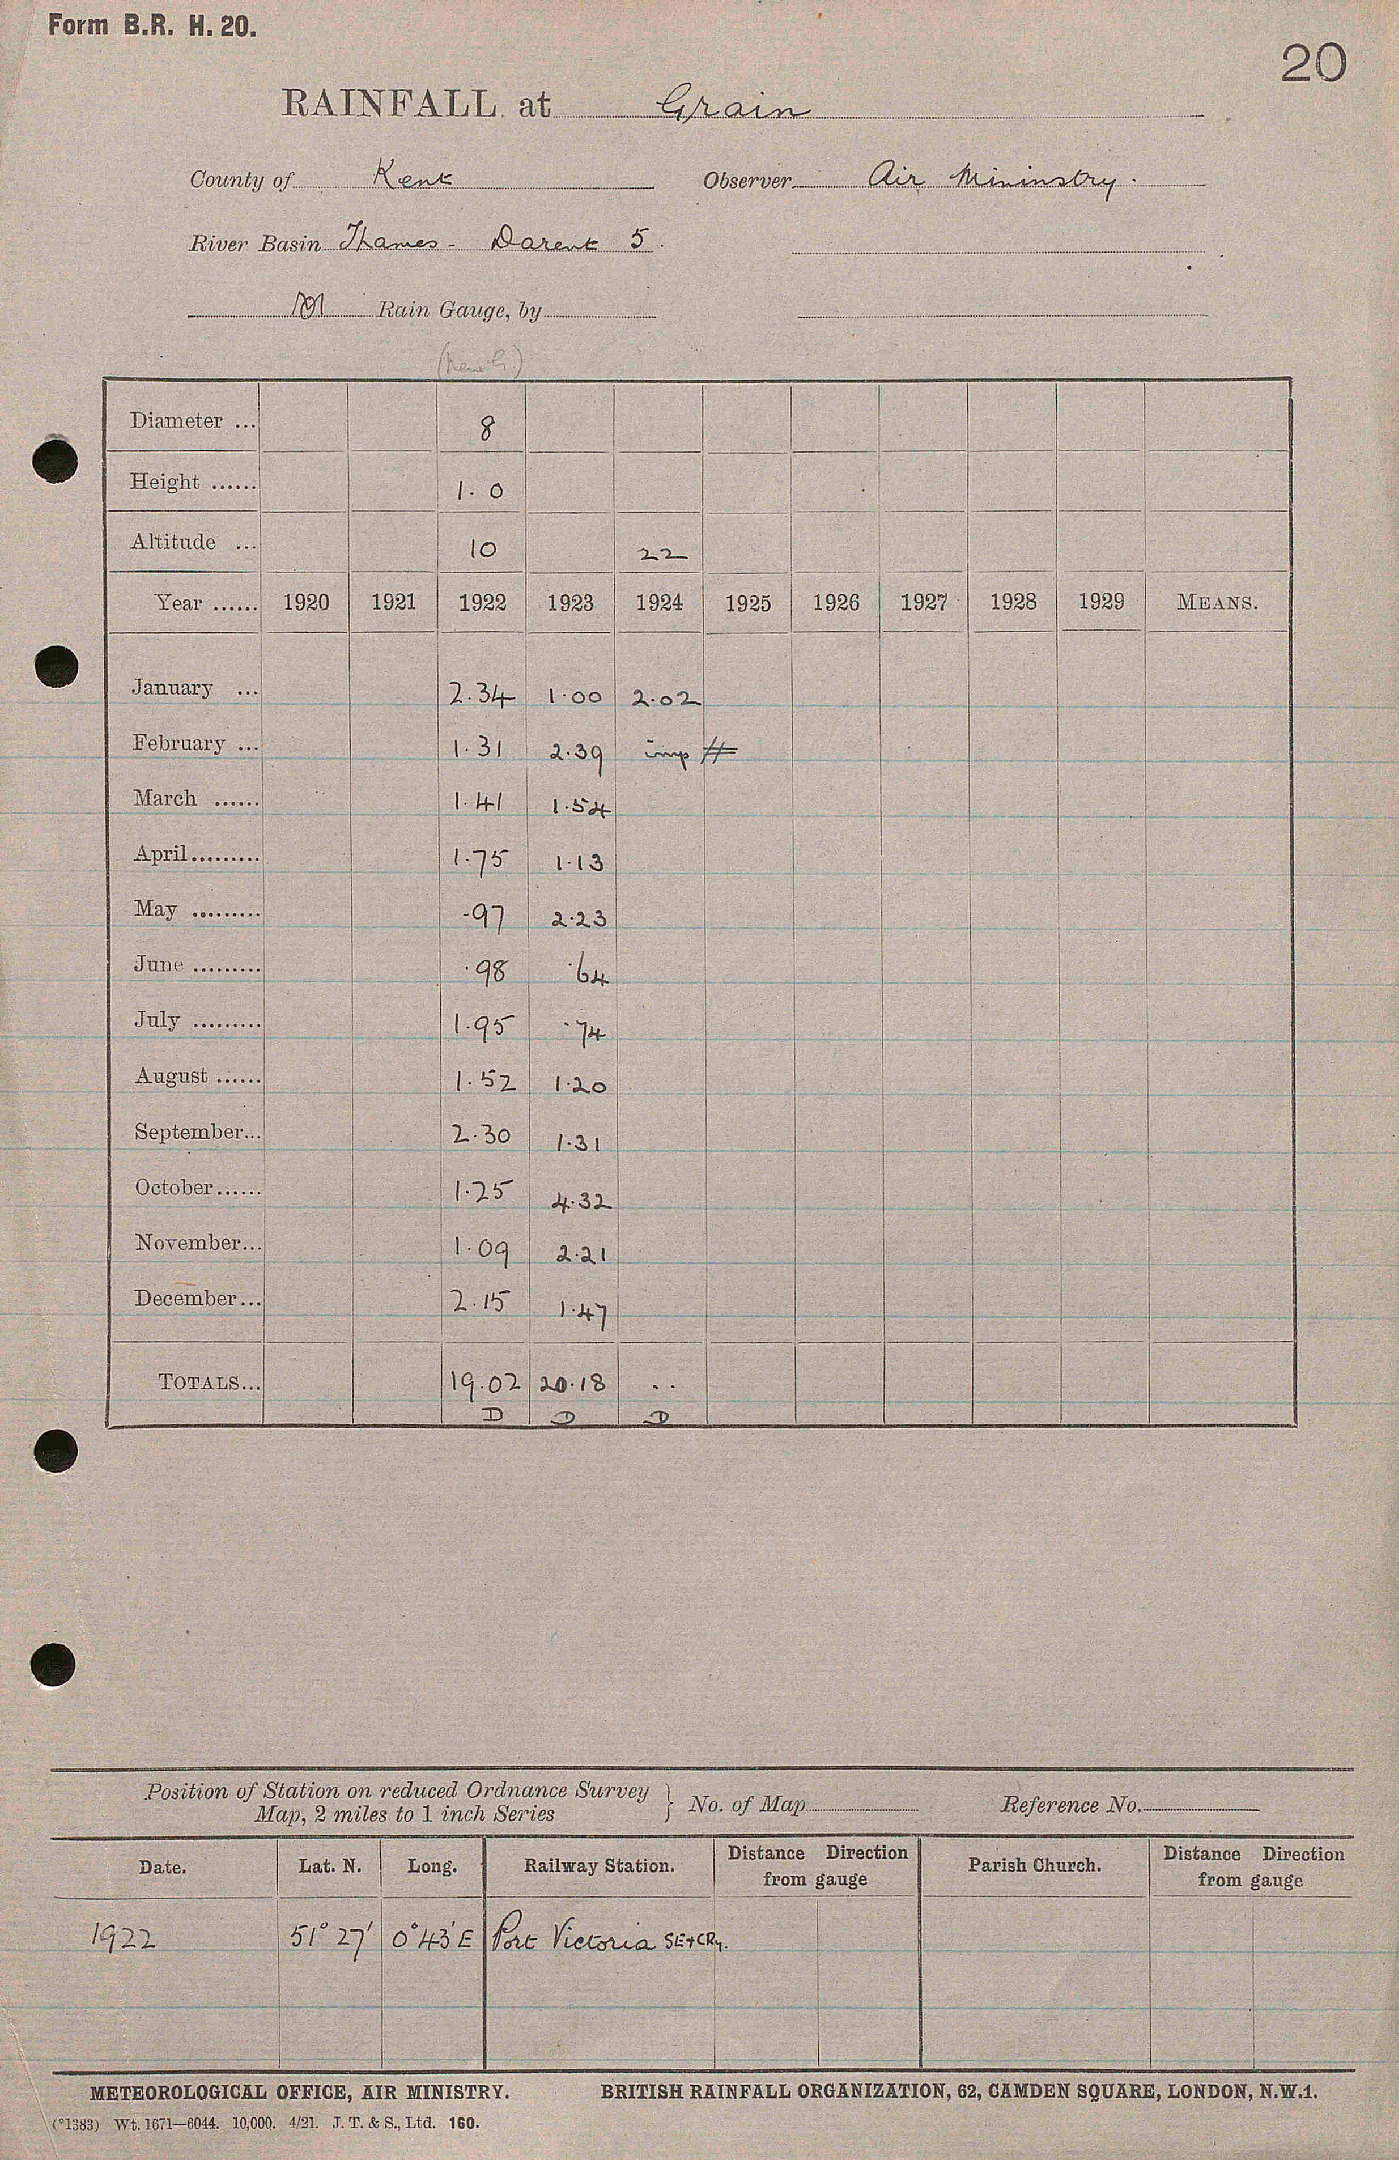 Form B.R. H. 20.
20
RAINFALL at Grain
County of Kent Observer Air Mininstry.
River Basin Thames - Darent 5.
Rain Gauge, by
Diameter ... 8
Height ...... 1.0
Altitude ... 10 22
Year ...... 1920 1921 1922 1923 1924 1925 1926 1927 1928 1929 MEANS.
January ... 2.34 1.00 2.02
February ... 1.31 2.39 imp #
March ...... 1.41 1.54
April ......... 1.75 1.13
May ......... .97 2.23
June ......... .98 .64
July ......... 1.95 .74
August ...... 1.52 1.20
September... 2.30 1.31
October ...... 1.25 4.32
November... 1.09 2.21
December... 2.15 1.47
TOTALS... 19.02 20.18 ..
D D D
Position of Station on reduced Ordnance Survey
Map, 2 miles to 1 inch Series } No. of Map Reference No.
Date. Lat. N. Long. Railway Station. Distance Direction from gauge Parish Church. Distance Direction from gauge
1922 51° 27' 0°43'E Port Victoria SE+CRy.
METEOROLOGICAL OFFICE, AIR MINISTRY. BRITISH RAINFALL ORGANIZATION, 62, CAMDEN SQUARE, LONDON, N.W.1.
(*1383) Wt. 1671—6044. 10,000. 4/21. J. T. & S., Ltd. 160.